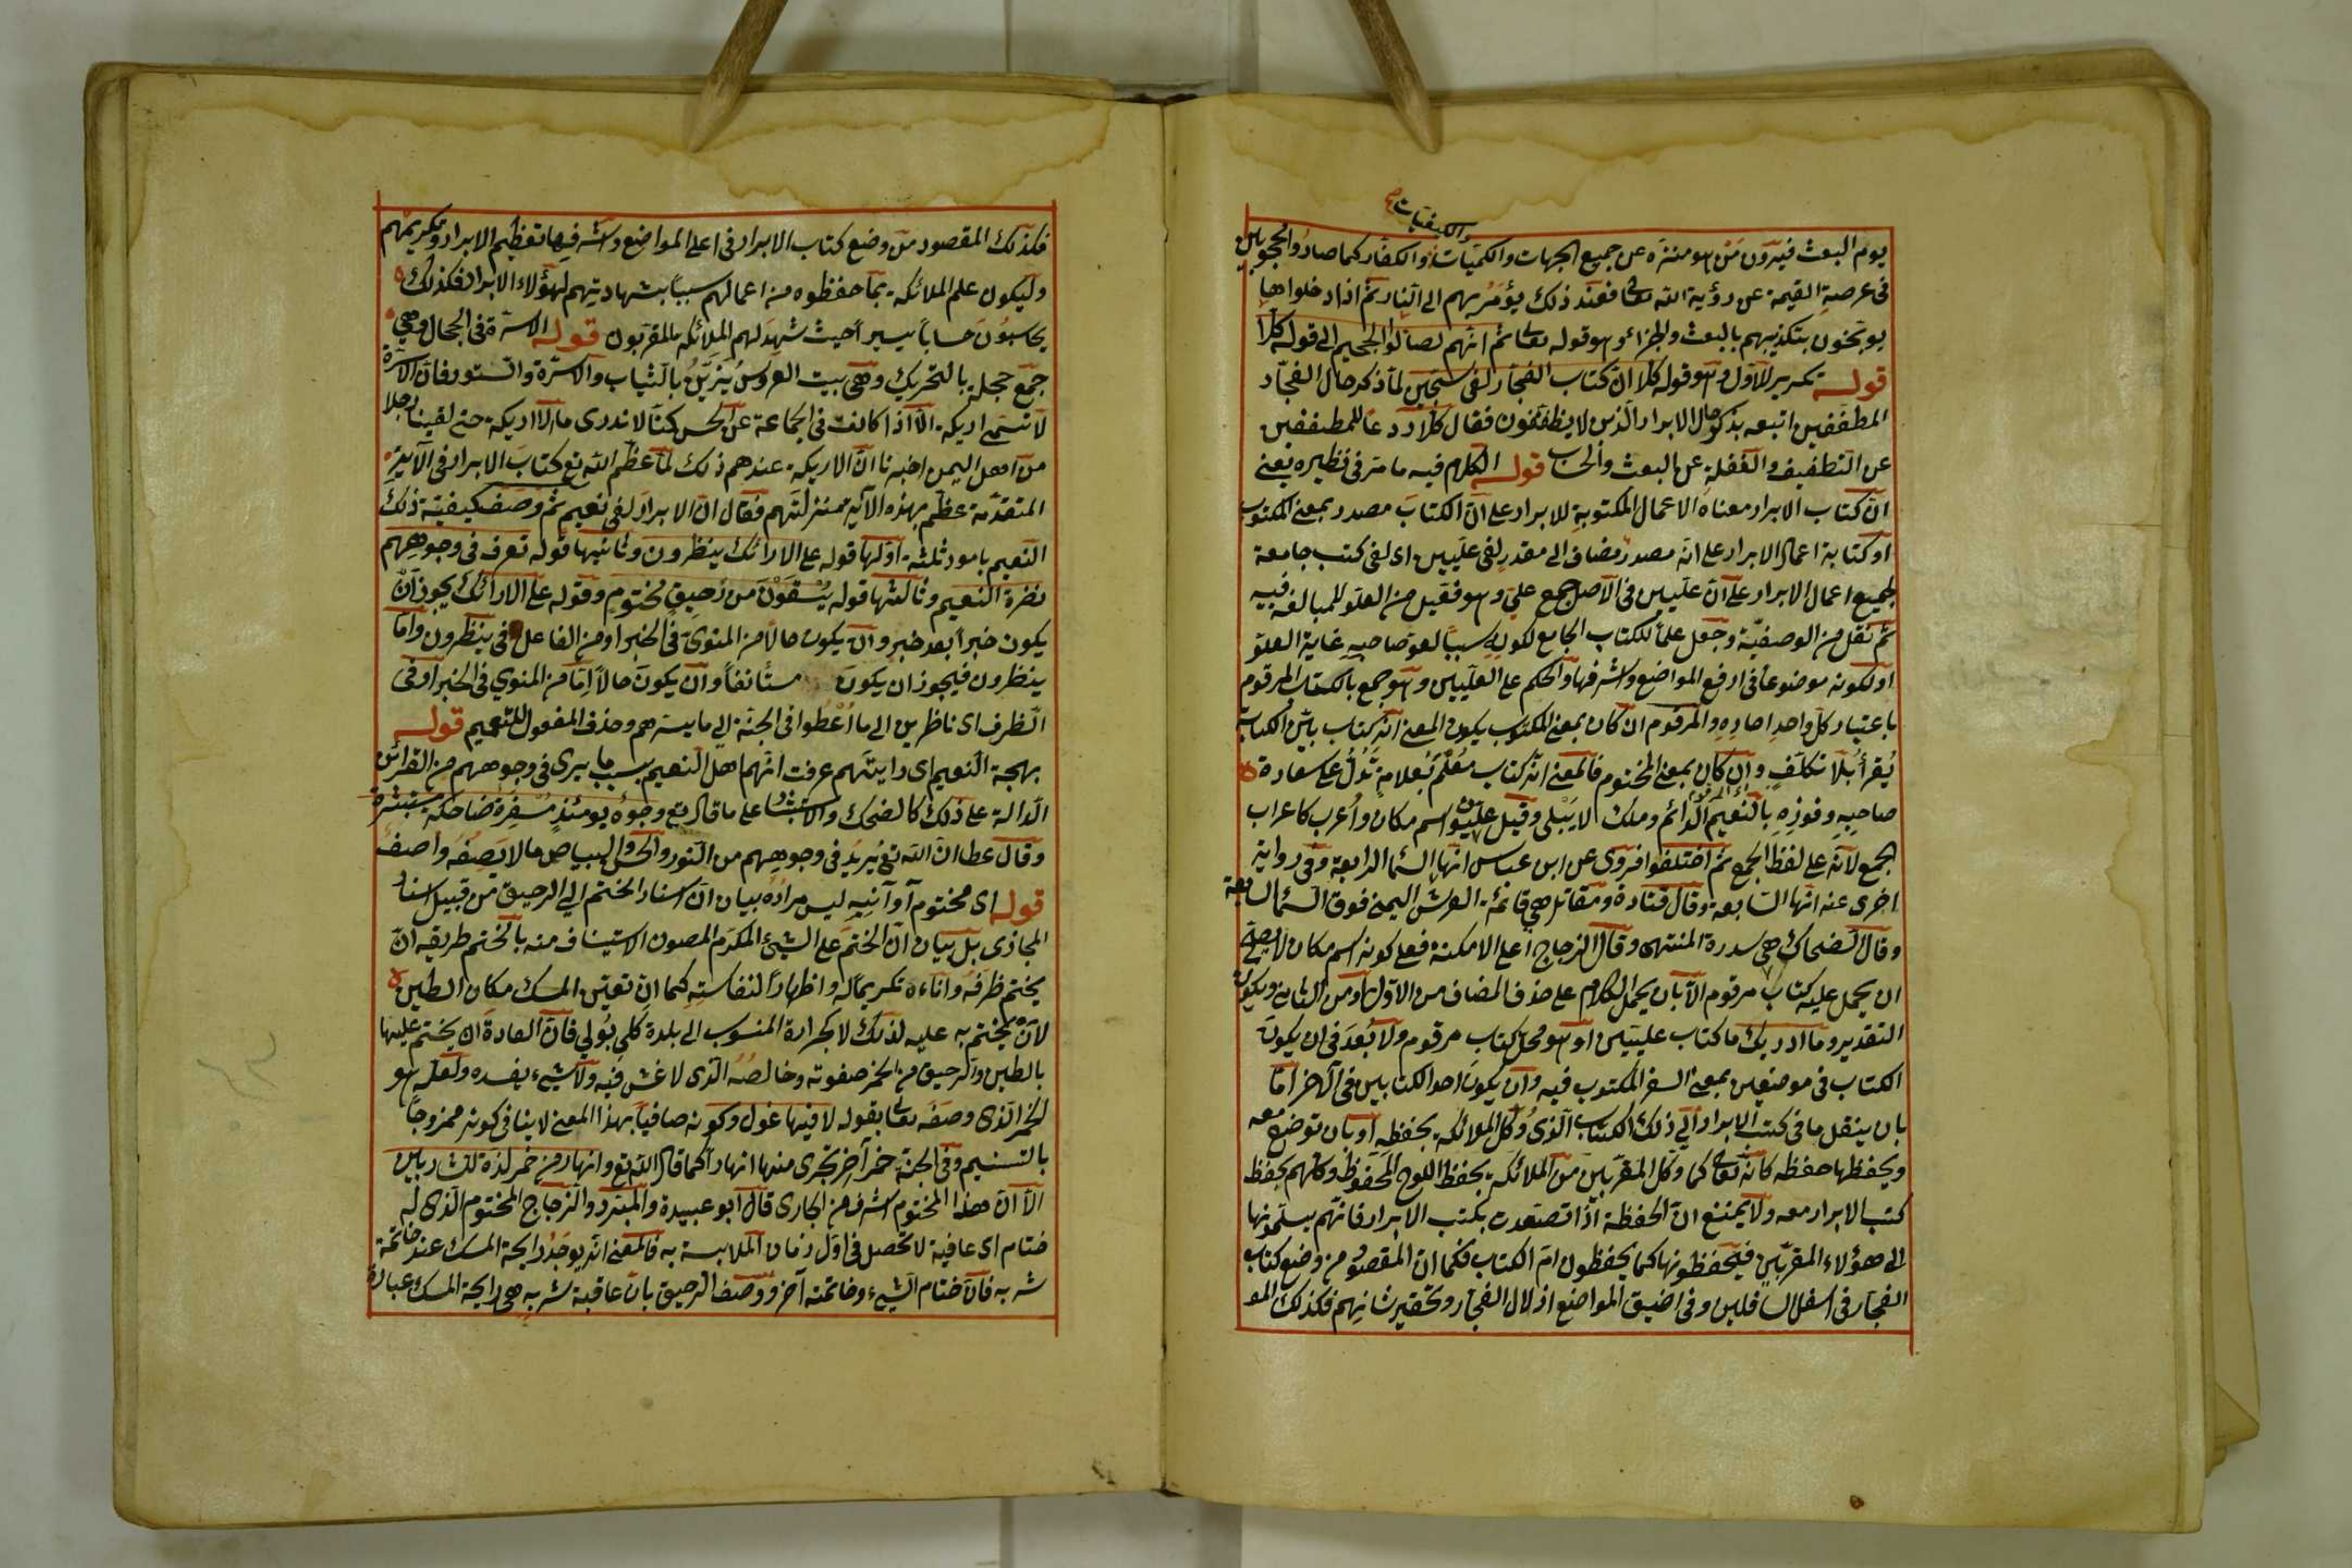 والكيفيات صح
يوم البعث فيرون من هو منزه عن جميع الجهات والكميات والكفار كما صاروا محجوبين
فى عرصة القيمة عن رؤية الله تعالى فعند ذلك يؤمر بهم الى النار ثم اذا دخلوها
يوبخون بتكذيبهم بالبعث والجزاء وهو قوله تعالى ثم انهم لصالوا الجحيم الى قوله كلا
قوله تكرير للاول وهو قوله كلا ان كتاب الفجار لفى سجين لما ذكر حال الفجار
المطففين اتبعه بذكر حال الابرار الذين لا يطففون فقال كلا ردعا للمطففين
عن التطفيف والغفلة عن البعث والحساب قوله الكلام فيه ما مر فى نظيره يعنى
ان كتاب الابرار معناه الاعمال المكتوبة للابرار على ان الكتاب مصدر بمعنى المكتوب
او كتابة اعمال الابرار على انه مصدر مضاف الى مقدر لفى عليين اى لفى كتب جامعة
لجميع اعمال الابرار على ان عليين فى الاصل جمع على وهو فعيل من العلو للمبالغة فيه
ثم نقل من الوصفية وجعل علما للكتاب الجامع لكونه سببا لعلو صاحبه غاية العلو
او لكونه موضوعا فى ارفع المواضع واشرفها والحكم على العليين وهو جمع بالكتاب المرقوم
باعتبار كل واحد احاده والمرقوم ان كان بمعنى المكتوب يكون المعنى انه كتاب بين الكتابة
يقرأ بلا تكلف وان كان بمعنى المختوم فالمعنى انه كتاب معلم بعلامة تدل على سعادة
صاحبه وفوزه بالنعيم الدائم وملك لا يبلى وقيل عليون اسم مكان واعرب كاعراب
الجمع لانه على لفظ الجمع ثم اختلفوا فروى عن ابن عباس انها السماء الرابعة وفى رواية
اخرى عنه انها السابعة وقال قتادة ومقاتل هى قائمة العرش اليمنى فوق السماء السابعة
وقال الضحاك هى سدرة المنتهى وقال الزجاج اعلى الامكنة فعلى كونه اسم مكان لا يصح
ان يحمل عليه كتاب مرقوم الا بان يحمل الكلام على حذف المضاف من الاول او من الثانى ويكون
التقدير وما ادريك ما كتاب عليين او هو محل كتاب مرقوم ولا بعد فى ان يكون
الكتاب فى موضعين بمعنى السفر المكتوب فيه وان يكون احد الكتابين فى الاخر اما
بان ينقل ما فى كتب الابرار الى ذلك الكتاب الذى وكل الملائكة بحفظه او بان توضع معه
ويحفظها حفظه كانه تعالى كما وكل المقربين من الملائكة بحفظ اللوح المحفوظ وكلهم بحفظ
كتب الابرار معه ولا يمتنع ان الحفظة اذا تصعدت بكتب الابرار فانهم يسلمونها
الى هؤلاء المقربين فيحفظونها كما يحفظون ام الكتاب فكما ان المقصود من وضع كتاب
الفجار فى اسفل السافلين وفى اضيق المواضع اذلال الفجار وتحقير شانهم فكذلك المو
فكذلك المقصود من وضع كتاب الابرار فى اعلى المواضع واشرفها تعظيم الابرار وتكريمهم
وليكون علم الملائكة بما حفظوه من اعمالهم سببا بشهاديتهم لهؤلاء الابرار فكذلك
يحاسبون حسابا يسيرا حيث شهد لهم الملائكة المقربون قوله الاسرة فى الحجال وهى
جمع حجلة بالتحريك وهى بيت العروس يزين بالثياب والاسرة والستور فان الاسرة
لا تسمى اريكة الا اذا كانت فى الجماعة عن الحسن كنا لا ندرى ما الاريكة حتى لقينا رجلا
من اهل اليمن اخبرنا ان الاريكة عندهم ذلك لما عظم الله تع كتاب الابرار فى الآية
المتقدمة عظم بهذه الآية منزلتهم فقال ان الابرار لفى نعيم ثم وصف كيفية ذلك
النعيم بامور ثلثة اولها قوله على الارائك ينظرون وثانيها قوله تعرف فى وجوههم
نضرة النعيم وثالثها قوله يسقون من رحيق مختوم وقوله على الارائك يجوز ان
يكون خبرا بعد خبر وان يكون حالا من المنوى فى الخبر او من الفاعل فى ينظرون واما
ينظرون فيجوز ان يكون مستأنفا وان يكون حالا اما من المنوى فى الخبر او فى
الظرف اى ناظرين الى ما اعطوا فى الجنة الى ما يسرهم وحذف المفعول للتعميم قوله
بهجة النعيم اى اذا رايتهم عرفت انهم اهل النعيم بسبب ما يرى فى وجوههم من القرائن
الدالة على ذلك كالضحك والاستبشار على ما قال تع وجوه يومئذ مسفرة ضاحكة مستبشرة
وقال عطا ان الله تع يزيد فى وجوههم من النور والحسن والبياض ما لا يصفه واصف
قوله اى مختوم آوانيه ليس مراده بيان ان اسناد الختم الى الرحيق من قبيل اسناد
المجازى بل بيان ان الختم على الشيئ المكرم المصون الاستيناف منه بالختم طريقه ان
يختم ظرفه واناءه تكريما له واظهارا لنفاسته كما ان تعين المسك مكان الطين
لان يختم به عليه لذلك لا كجرارة المنسوب الى بلدة فان العادة ان يختم عليها
بالطين والرحيق من الخمر صفوته وخالصه الذى لا غش فيه ولا شيئ يفسده ولعله هو
الخمر الذى وصفه تعالى بقوله لا فيها غول وكونه صافيا بهذا المعنى لا ينافى كونه ممزوجا
بالتسنيم وفى الجنة خمر آخر تجرى منها انهار كما قال الله تع وانهار من خمر لذة للشاربين
الا ان هذا المختوم اشرف من الجارى قال ابو عبيدة والمبرد والزجاج المختوم الذى له
ختام اى عاقبة لا تحصل فى اول زمان الملابسة به فالمعنى انه يوجد رايحة المسك عند خاتمة
شربه فان ختام الشيئ وخاتمته آخره ووصف الرحيق بان عاقبة شربه هى رايحة المسك عبارة